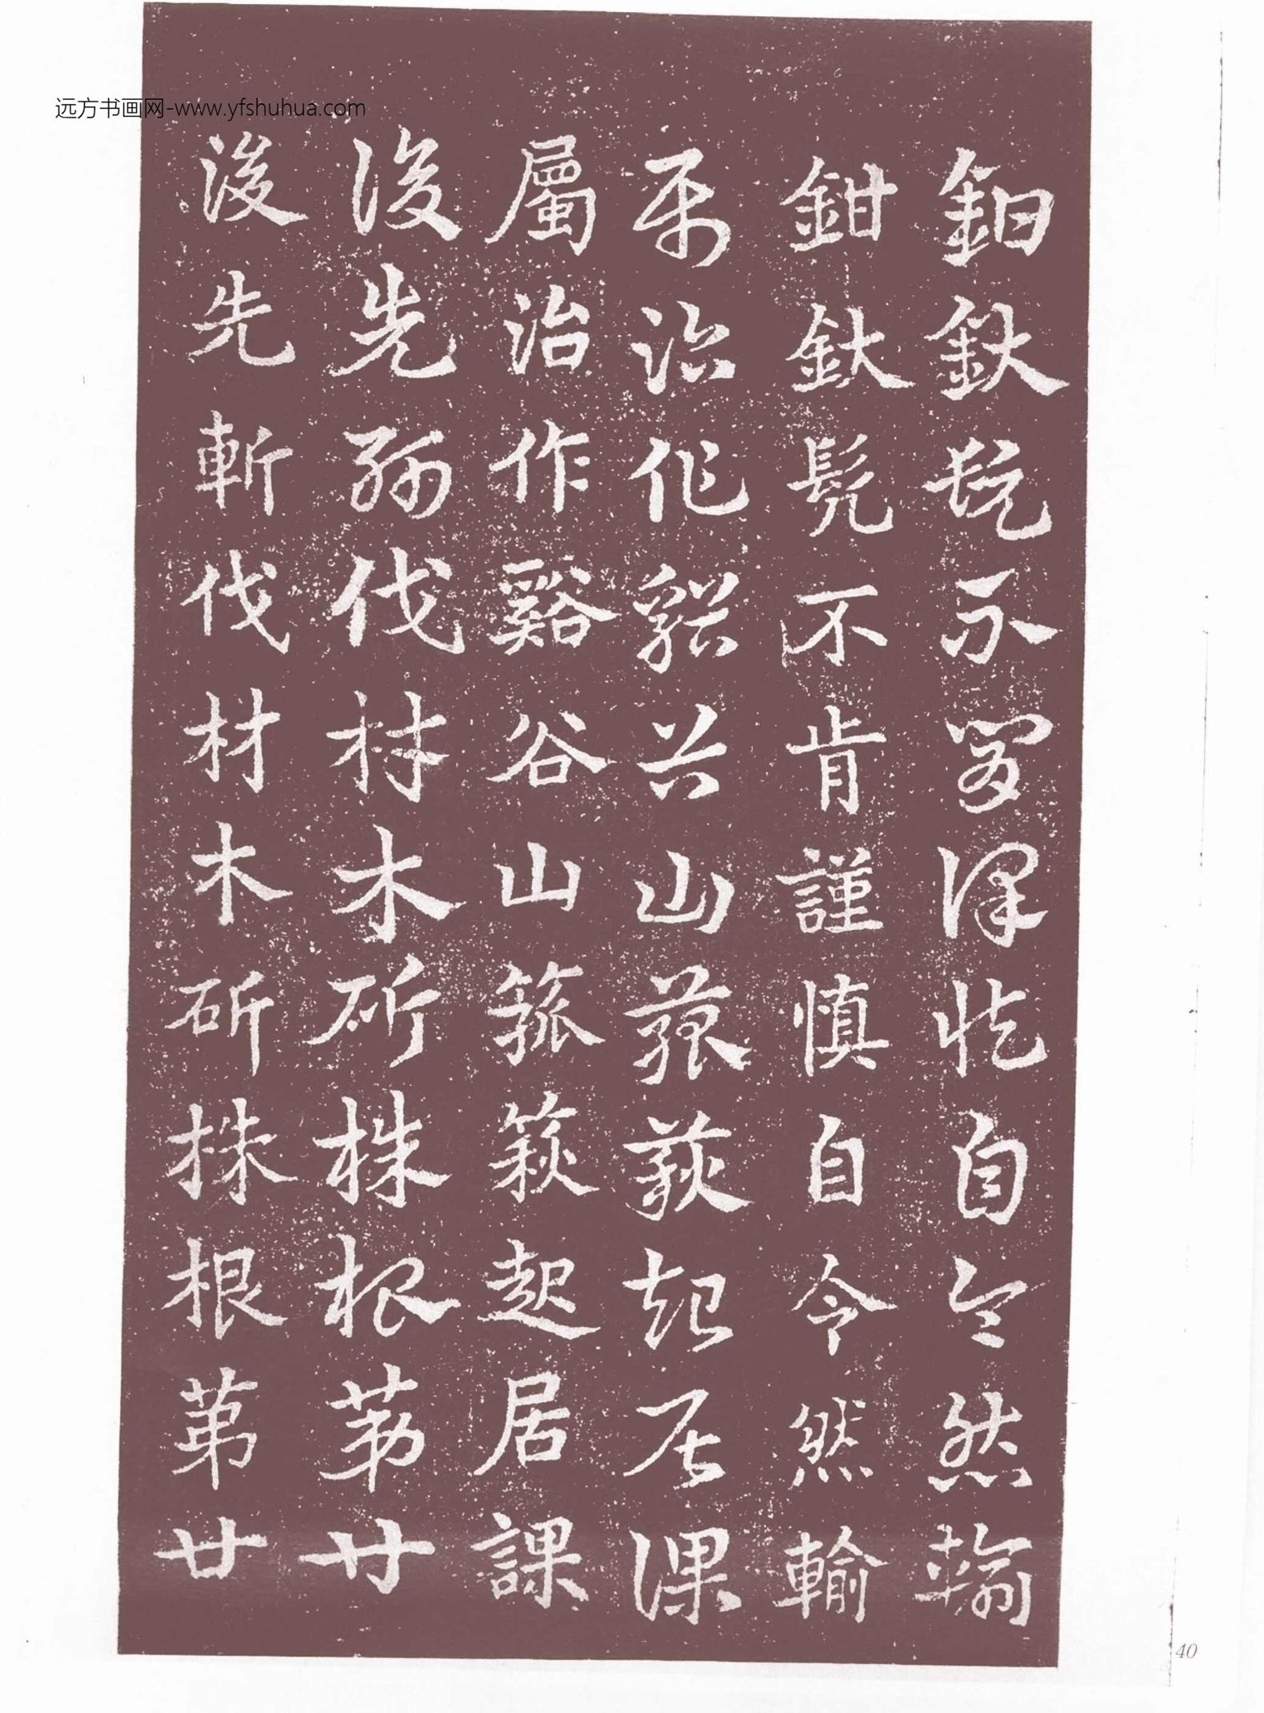 远方书画网-www.yfshuhua.com
鉗釱髡不肯謹慎自令然輸
鉗釱髡不肯謹慎自令然輸
屬治作谿谷山菰荻起居課
屬治作谿谷山箛篍起居課
後先斬伐材木斫株根苐廿
後先斬伐材木斫株根苐廿
40